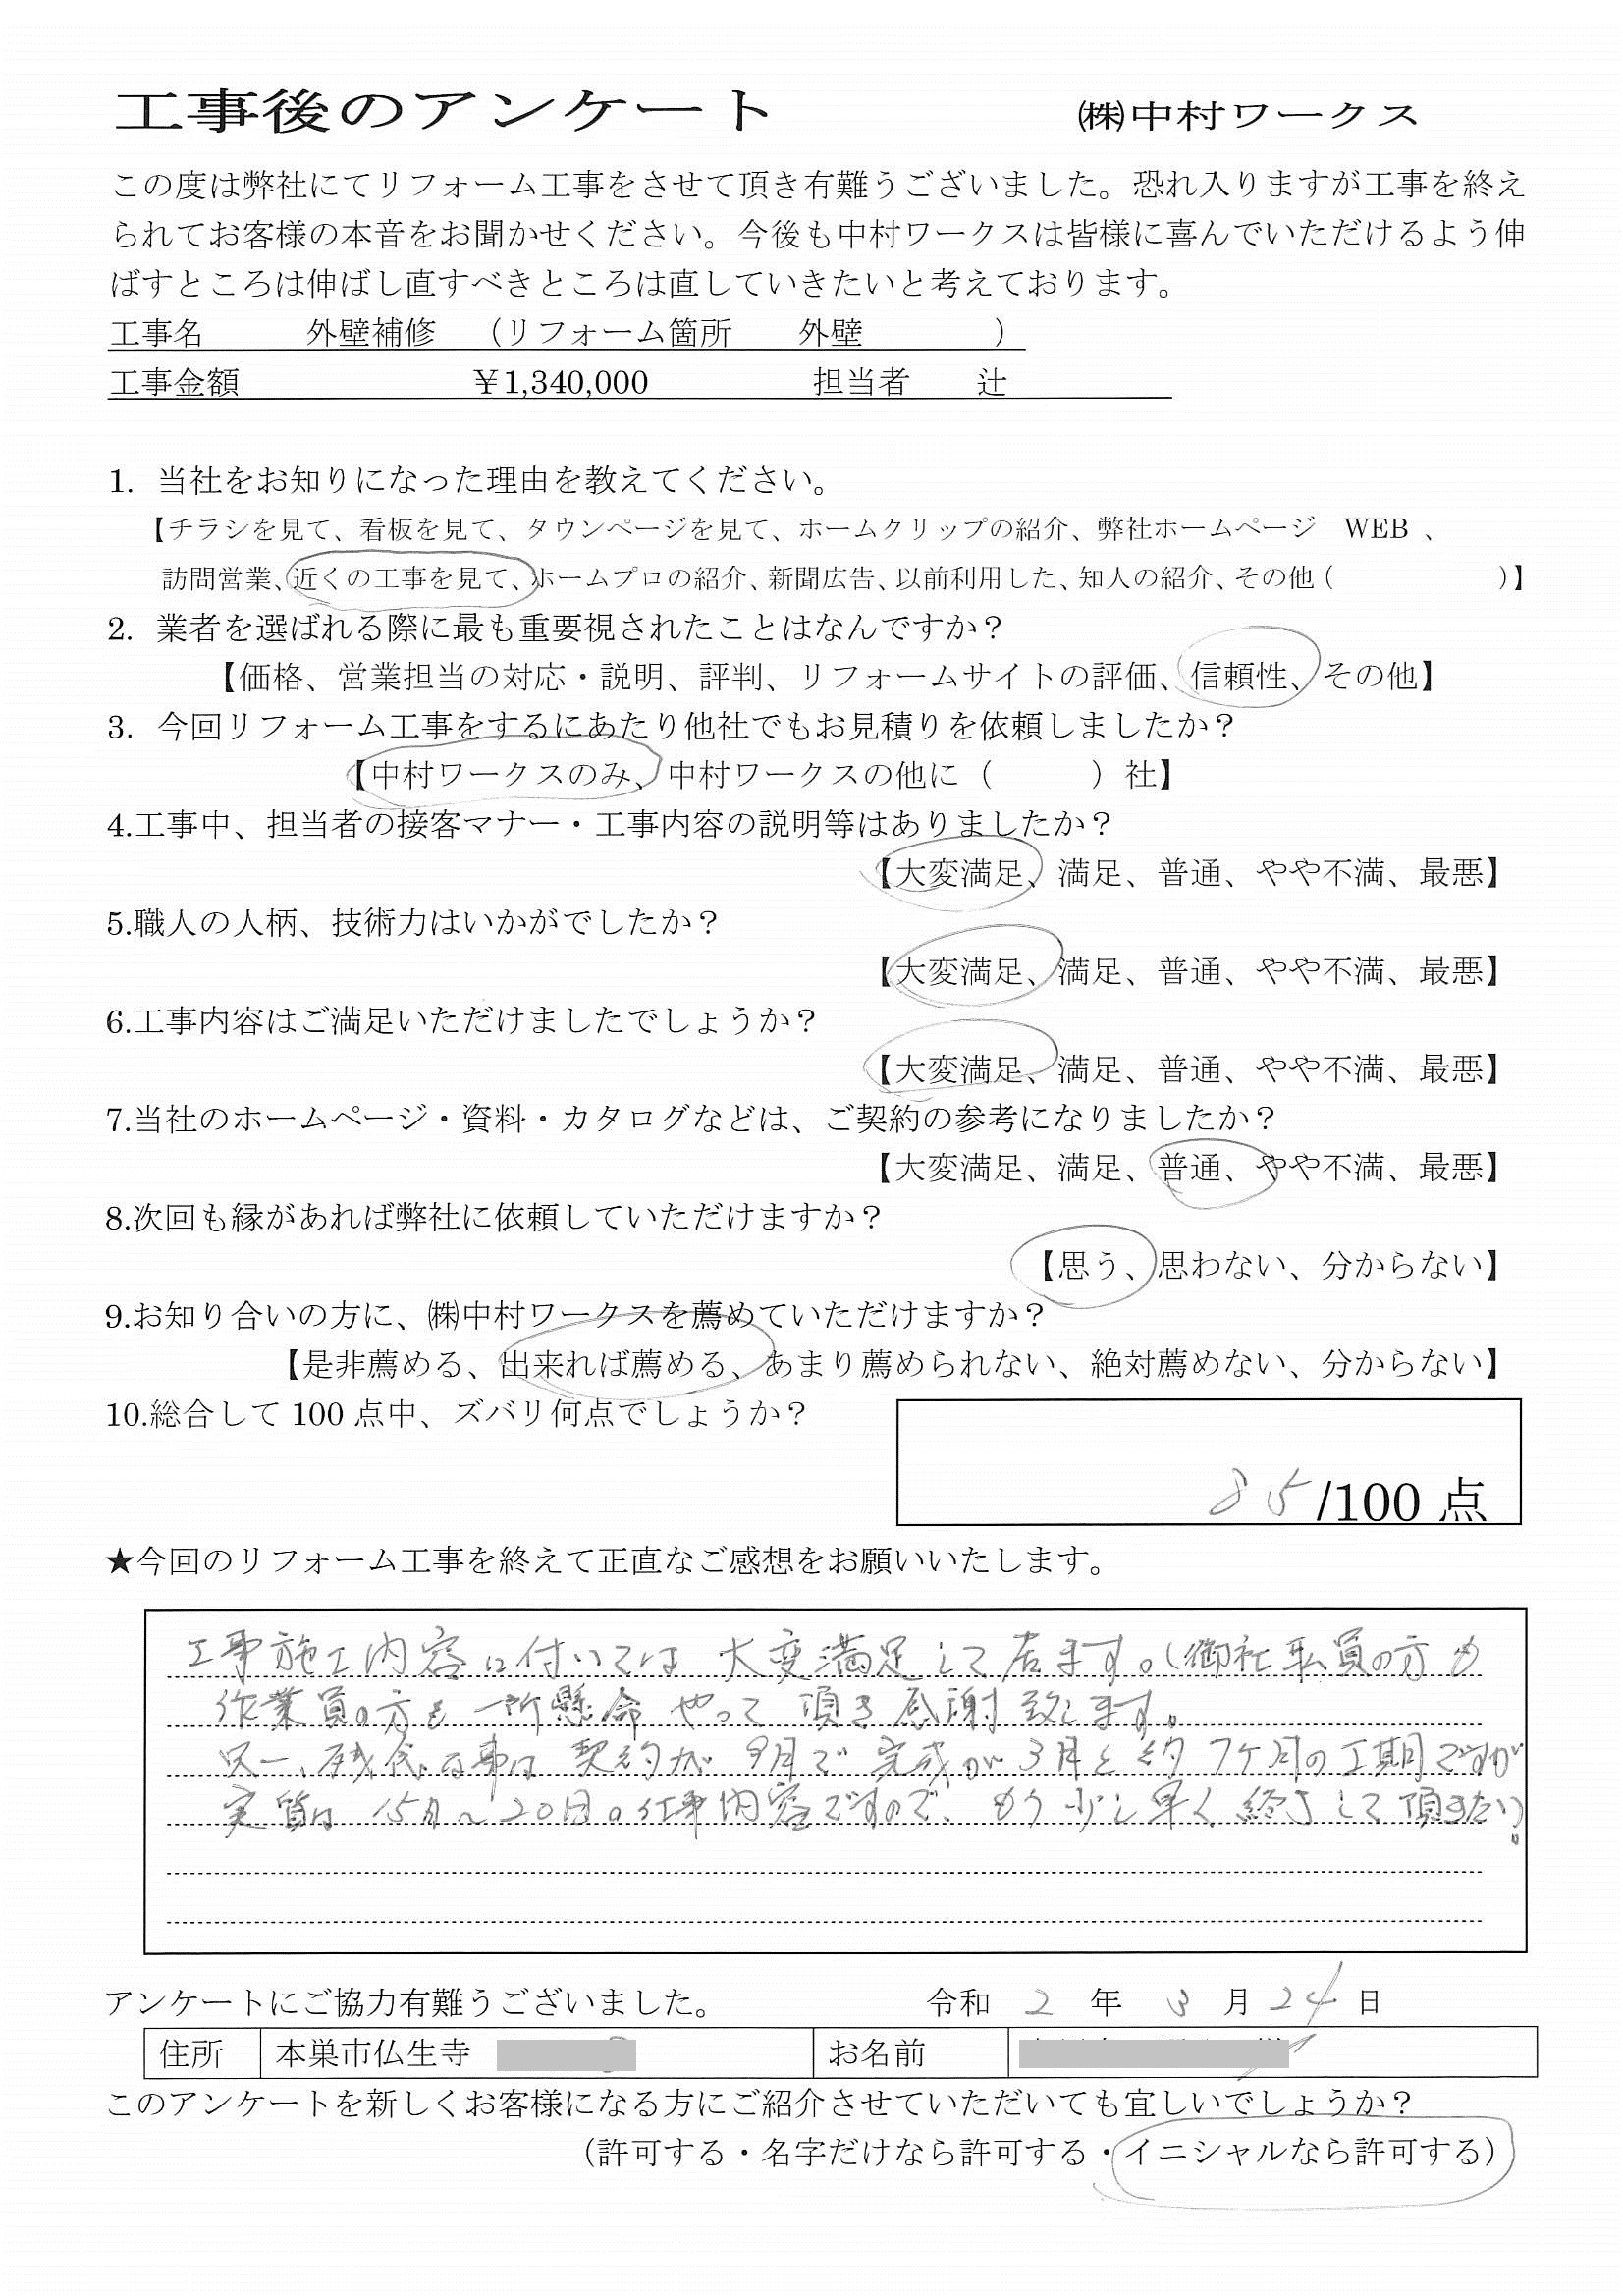 工事後のアンケート ㈱中村ワークス
この度は弊社にてリフォーム工事をさせて頂き有難うございました。恐れ入りますが工事を終え
られてお客様の本音をお聞かせください。今後も中村ワークスは皆様に喜んでいただけるよう伸
ばすところは伸ばし直すべきところは直していきたいと考えております。
工事名 外壁補修 （リフォーム箇所 外壁 ）
工事金額 ￥1,340,000 担当者 辻
1. 当社をお知りになった理由を教えてください。
【チラシを見て、看板を見て、タウンページを見て、ホームクリップの紹介、弊社ホームページ WEB 、
訪問営業、近くの工事を見て、ホームプロの紹介、新聞広告、以前利用した、知人の紹介、その他（ ）】
2. 業者を選ばれる際に最も重要視されたことはなんですか？
【価格、営業担当の対応・説明、評判、リフォームサイトの評価、信頼性、その他】
3. 今回リフォーム工事をするにあたり他社でもお見積りを依頼しましたか？
【中村ワークスのみ、中村ワークスの他に（ ）社】
4.工事中、担当者の接客マナー・工事内容の説明等はありましたか？
【大変満足、満足、普通、やや不満、最悪】
5.職人の人柄、技術力はいかがでしたか？
【大変満足、満足、普通、やや不満、最悪】
6.工事内容はご満足いただけましたでしょうか？
【大変満足、満足、普通、やや不満、最悪】
7.当社のホームページ・資料・カタログなどは、ご契約の参考になりましたか？
【大変満足、満足、普通、やや不満、最悪】
8.次回も縁があれば弊社に依頼していただけますか？
【思う、思わない、分からない】
9.お知り合いの方に、㈱中村ワークスを薦めていただけますか？
【是非薦める、出来れば薦める、あまり薦められない、絶対薦めない、分からない】
10.総合して 100 点中、ズバリ何点でしょうか？
85/100 点
★今回のリフォーム工事を終えて正直なご感想をお願いいたします。
工事施工内容に付いては 大変満足して居ます。(御社社員の方も
作業員の方も 一所懸命 やって 頂き感謝致します。
只一、残念な事は 契約が 9月で 完成が 3月と 約 7ケ月の工期ですが
実質は 15日～20日の仕事内容ですので、もう少し早く 終了して頂きたい。
アンケートにご協力有難うございました。 令和 2 年 3 月 24 日
住所 本巣市仏生寺 お名前
このアンケートを新しくお客様になる方にご紹介させていただいても宜しいでしょうか？
（許可する・名字だけなら許可する・イニシャルなら許可する）